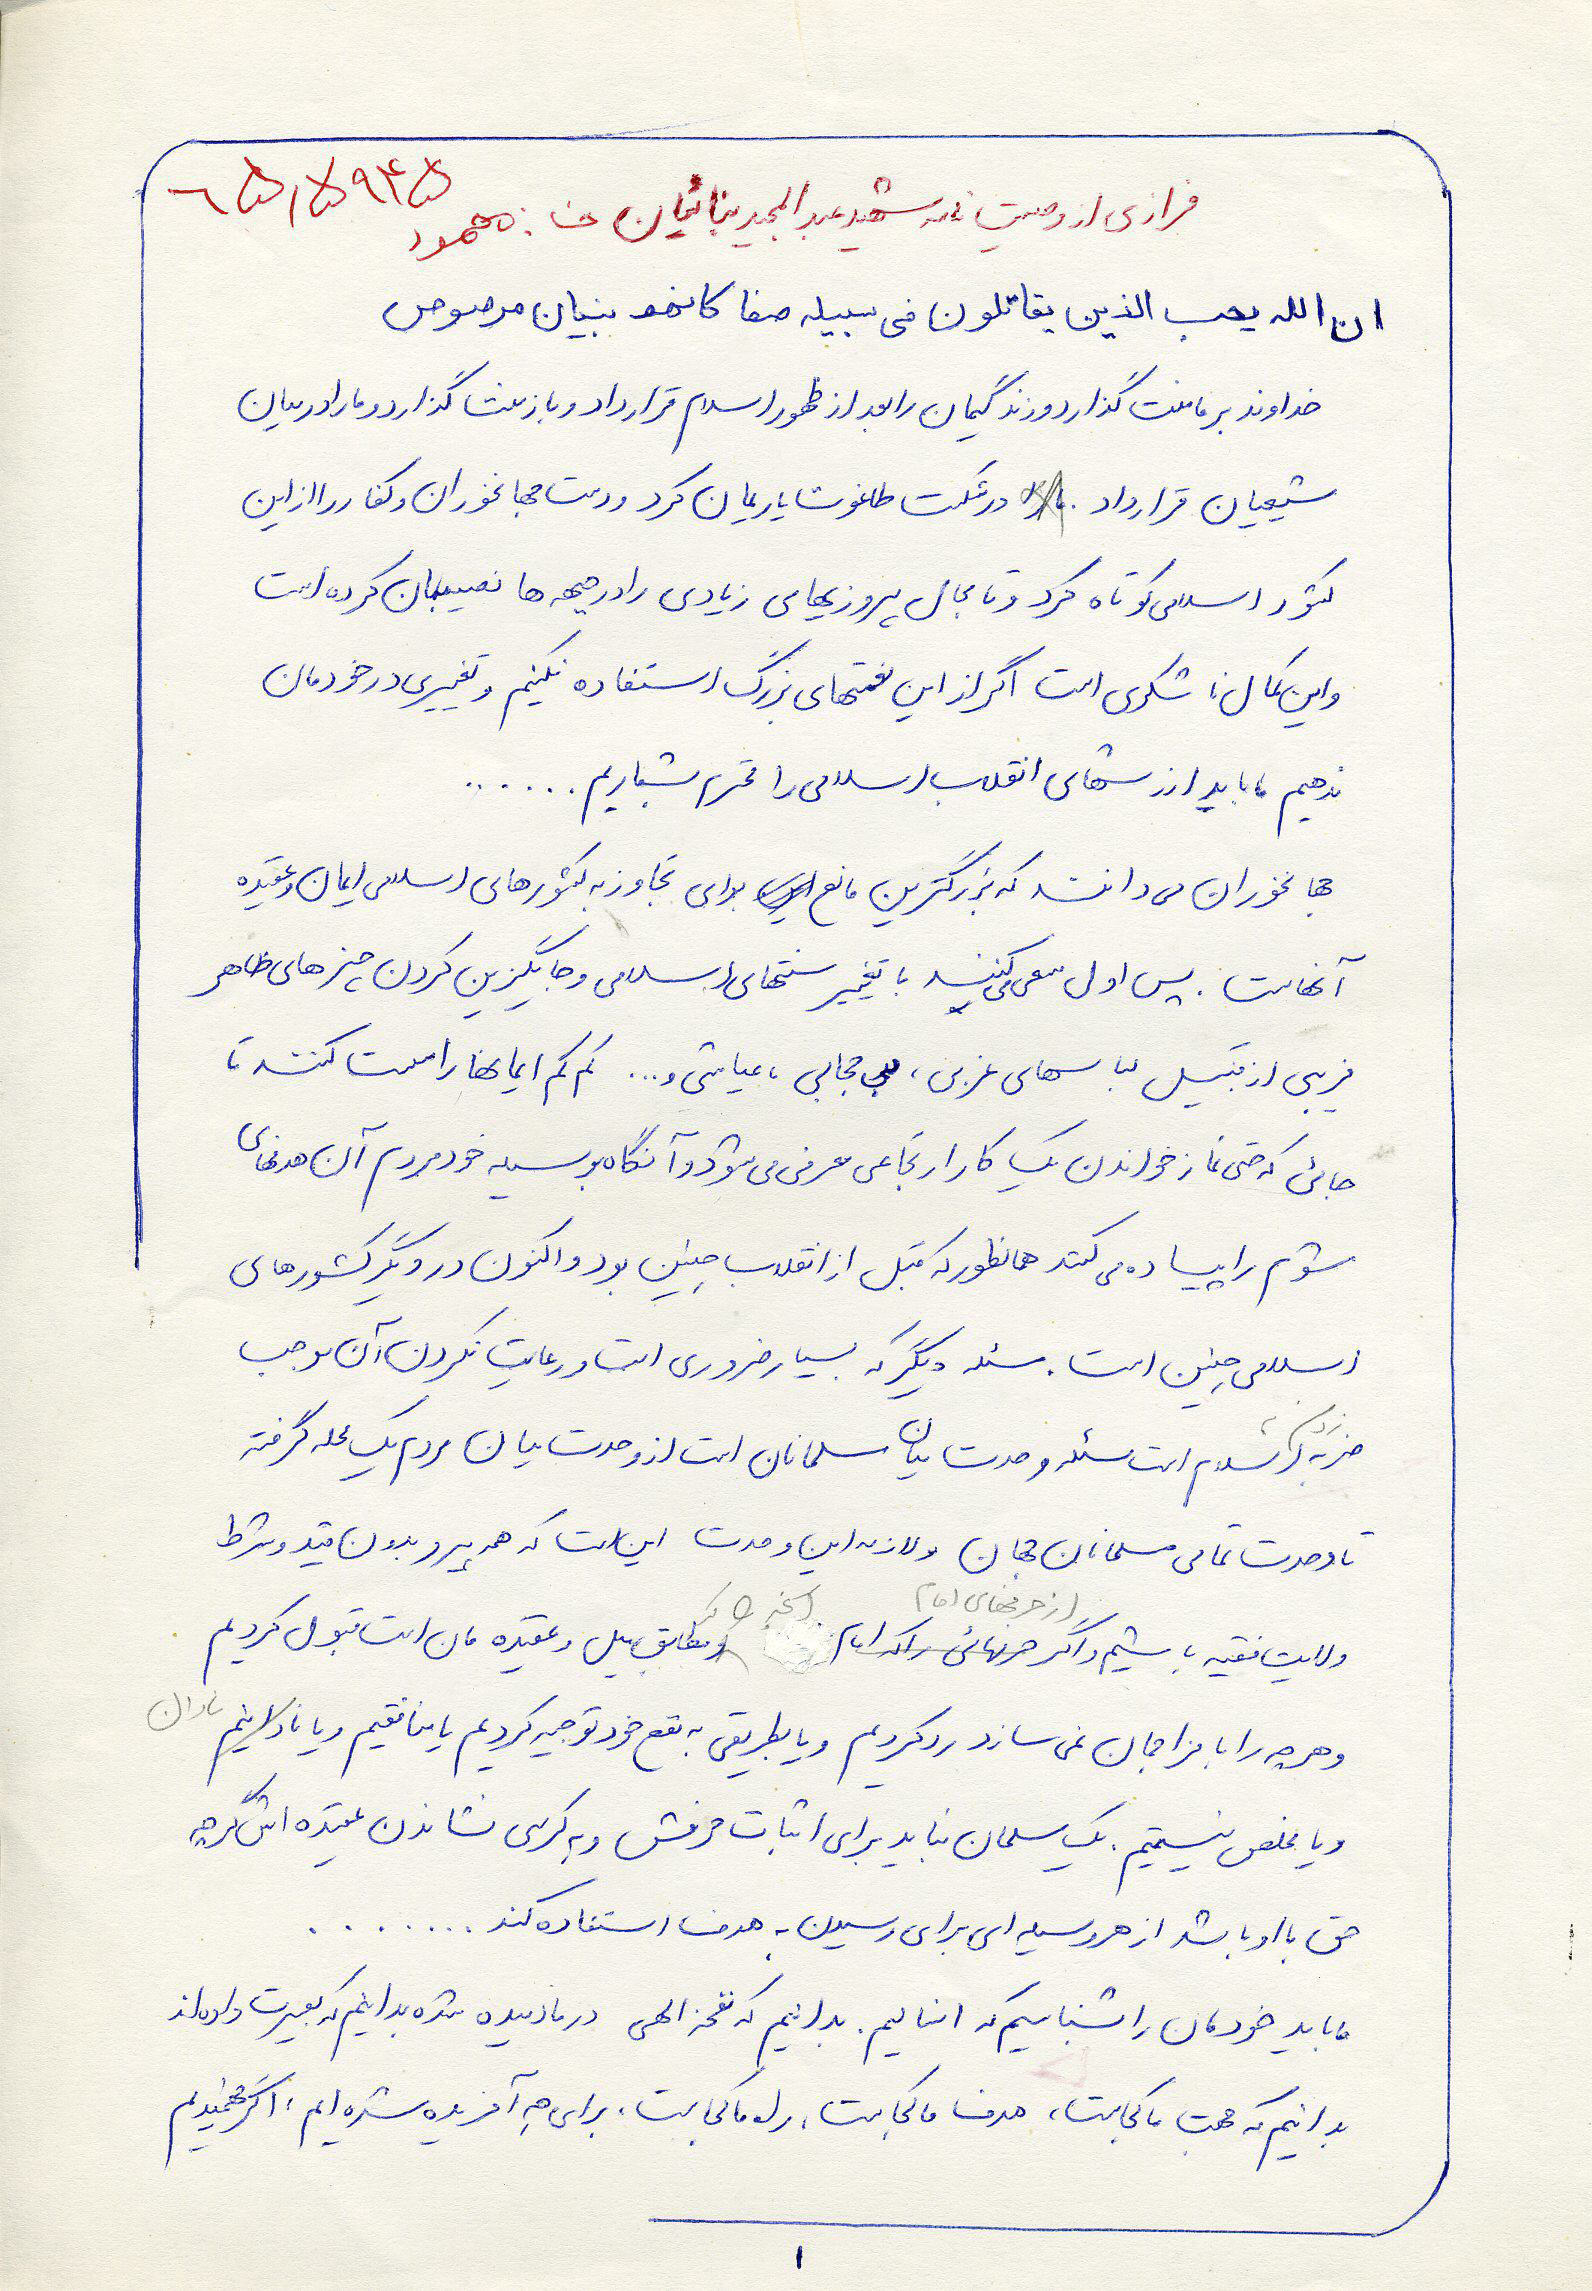 ۶۵۱۵۹۴۵
فرازی از وصیت نامه شهید عبدالمجید بنائیان ف: محمود
ان الله یحب الذین یقاتلون فی سبیله صفا کانهم بنیان مرصوص
خداوند بر ما منت گذارد و زندگیمان را بعد از ظهور اسلام قرار داد و باز منت گذارد و ما را در میان
شیعیان قرار داد. در شکست طاغوت یاریمان کرد و دست جهانخوران و کفار را از این
کشور اسلامی کوتاه کرد و تا بحال پیروزیهای زیادی را در جبهه ها نصیبمان کرده است
و این کمال ناشکری است اگر از این نعمتهای بزرگ استفاده نکنیم و تغییری در خودمان
ندهیم ما باید ارزشهای انقلاب اسلامی را محترم بشماریم . . . . . .
جهانخوران می دانند که بزرگترین مانع برای تجاوز به کشورهای اسلامی ایمان و عقیده
آنهاست. پس اول سعی می کنند با تغییر سنتهای اسلامی و جایگزین کردن چیزهای ظاهر
فریبی از قبیل لباسهای غربی، بی حجابی، عیاشی و... کم کم ایمانها را سست کنند تا
جائی که حتی نماز خواندن یک کار ارتجاعی معرفی می شود و آنگاه بوسیله خود مردم آن هدفهای
شوم را پیاده می کنند همانطور که قبل از انقلاب چنین بود و اکنون در دیگر کشورهای
اسلامی چنین است. مسئله دیگر که بسیار ضروری است و رعایت نکردن آن موجب
ضربه اسلام است مسئله وحدت میان مسلمانان است از وحدت میان مردم یک محله گرفته
تا وحدت تمامی مسلمانان جهان و لازمه این وحدت این است که همه پیرو بدون قید و شرط
از حرفهای امام آنچه که
ولایت فقیه باشیم و اگر حرفهائی را که امام مطابق میل و عقیده مان است قبول کردیم
و هرچه را با مزاجمان نمی سازد رد کردیم و یا بطریقی به نفع خود توجیه کردیم یا منافقیم و یا نادانیم نادان
و یا مخلص نیستیم. یک مسلمان نباید برای اثبات حرفش و به کرسی نشاندن عقیده اش گرچه
حق با او باشد از هر وسیله ای برای رسیدن به هدف استفاده کند . . . . . . . .
ما باید خودمان را بشناسیم که انسانیم. بدانیم که نفخه الهی در ما دمیده شده بدانیم که بصیرت داده اند
بدانیم که جهت ما کجاست، هدف ما کجاست، راه ما کجاست، برای چه آفریده شده ایم، اگر فهمیدیم
۱